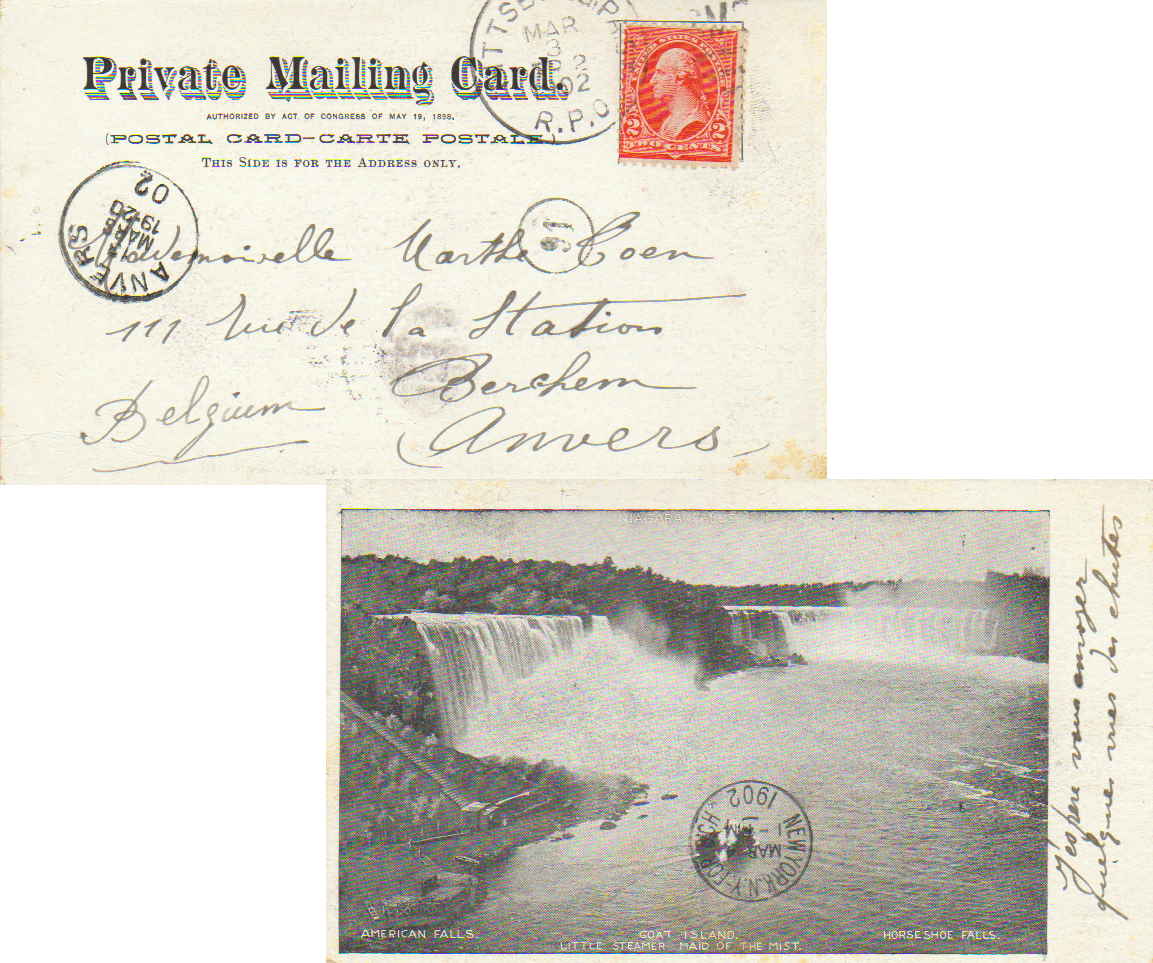 Private Mailing Card.
AUTHORIZED BY ACT OF CONGRESS OF MAY 19, 1898.
(POSTAL CARD—CARTE POSTALE.)
THIS SIDE IS FOR THE ADDRESS ONLY.
MAR
3
02
R.P.O
2 2
TWO CENTS
ANVERS
MARS
02
91
Mademoiselle Marthe Coen
111 Rue de la Station
Berchem
Belgium
Anvers
NIAGARA FALLS
AMERICAN FALLS.
GOAT ISLAND.
LITTLE STEAMER MAID OF THE MIST.
HORSESHOE FALLS.
NEW YORK, N.Y.
MAR
1902
J'espère vous envoyer
quelques vues des chutes